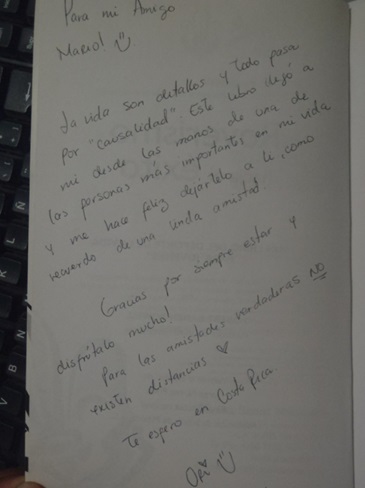 Para mi Amigo
Mario! :)
La vida son detalles y todo pasa
por "causalidad". Este libro llegó a
mi desde las manos de una de
las personas más importantes en mi vida
y me hace feliz dejártelo a ti, como
recuerdo de una linda amistad.
Gracias por siempre estar y
disfrútalo mucho!
Para las amistades verdaderas NO
existen distancias ♥
Te espero en Costa Rica